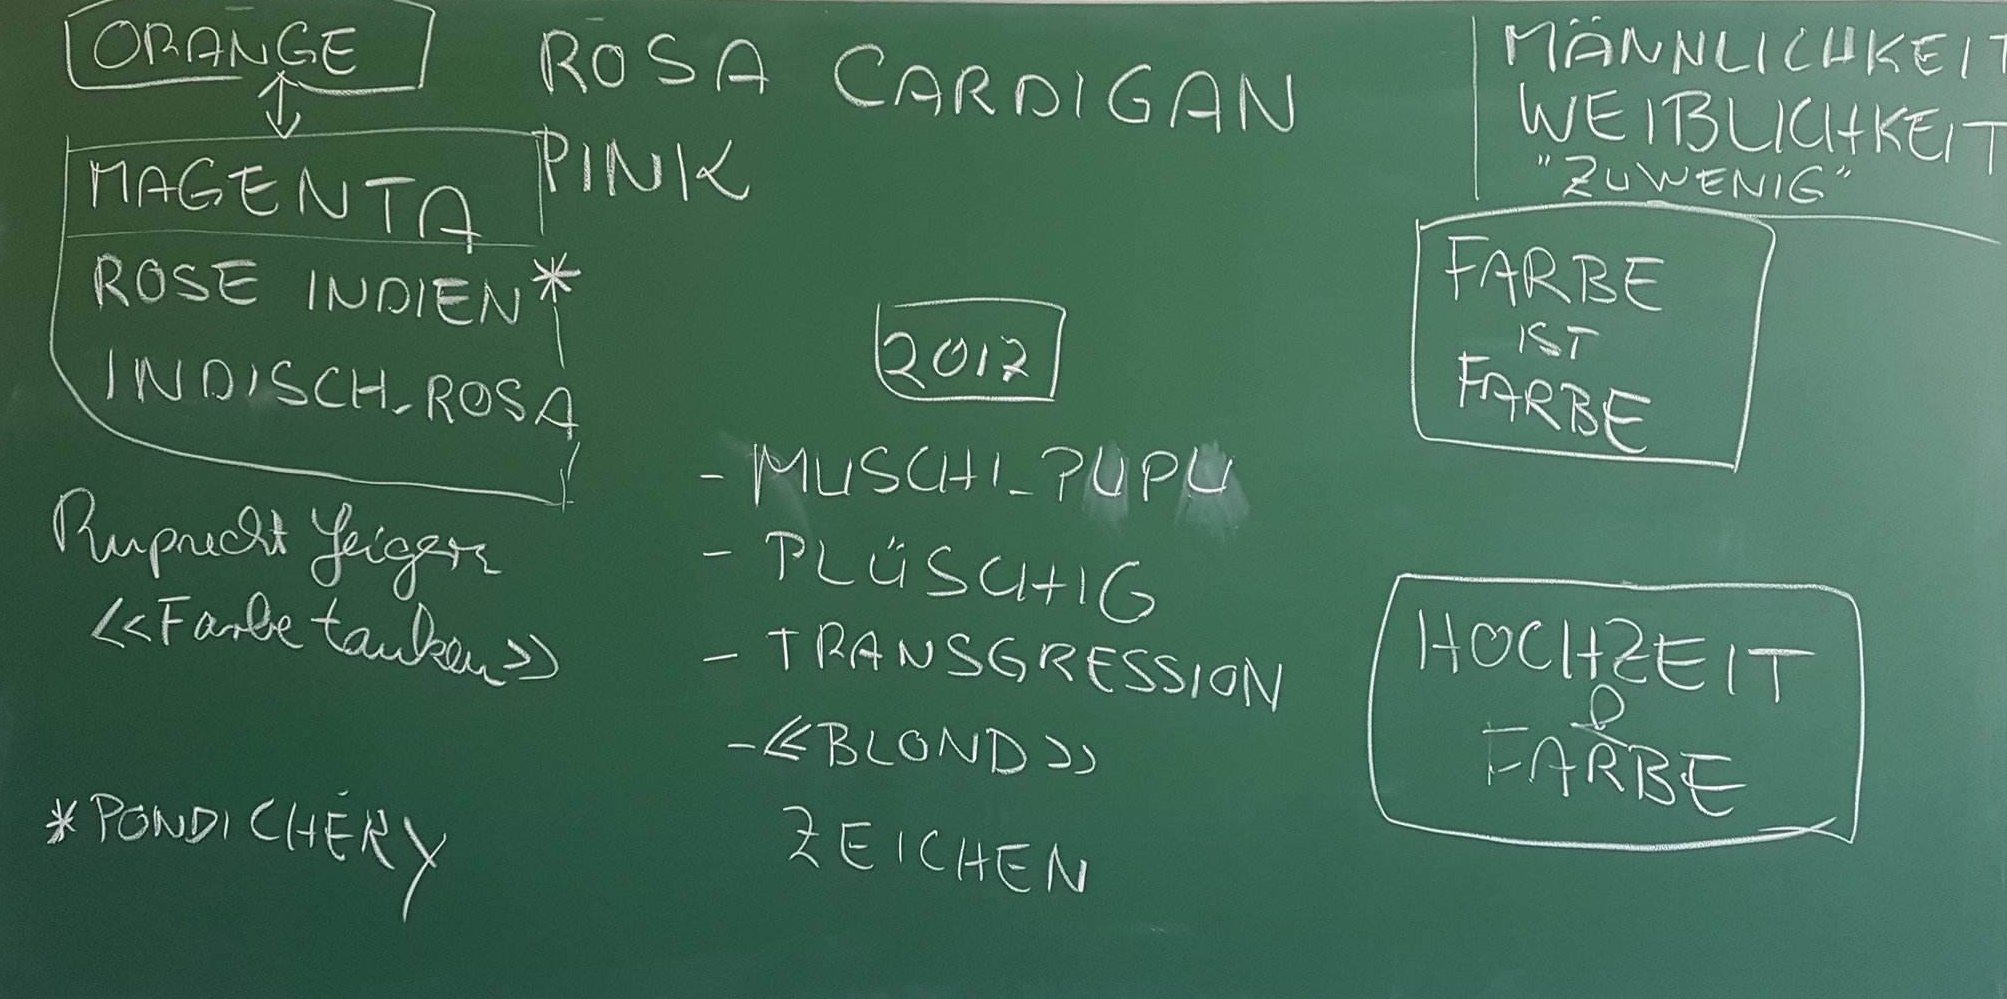 ORANGE
MAGENTA
ROSE INDIEN*
INDISCH-ROSA
Ruprecht Geiger
<<Farbe tanken>>
*PONDICHÉRY
ROSA CARDIGAN
PINK
2017
- MUSCHI-PUPU
- PLÜSCHIG
- TRANSGRESSION
- <<BLOND>>
ZEICHEN
MÄNNLICHKEIT
WEIBLICHKEIT
"ZUWENIG"
FARBE
IST
FARBE
HOCHZEIT
&
FARBE